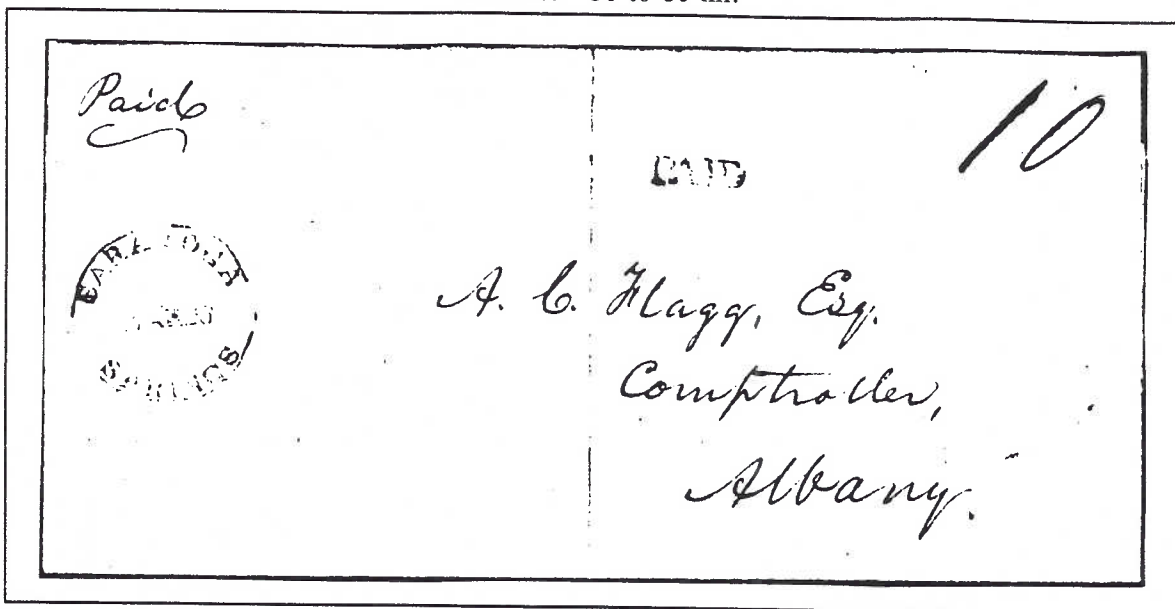 Paid
10
PAID
SARATOGA
SPRINGS
A. C. Flagg, Esq.
Comptroller,
Albany.